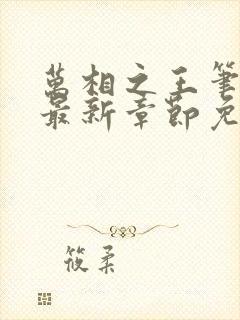 萬相之王筆
最新章節免
筱柔